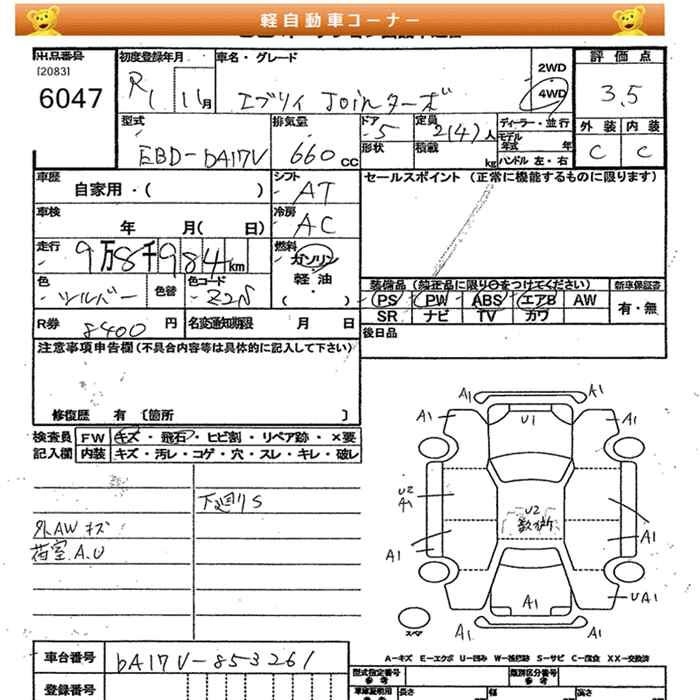 軽自動車コーナー
出品番号
[2083]
6047
初度登録年月
R1 11月
車名・グレード
エブリイ Joinターボ
2WD
4WD
評価点
3.5
外装 内装
C C
型式
EBD-DA17V
排気量
660 cc
ドア
5
形状
定員
2(4)人
積載
kg
ディーラー・並行
モデル年式 年
ハンドル 左・右
車歴
自家用・( )
シフト
AT
セールスポイント (正常に機能するものに限ります)
車検
年 月( 日)
冷房
AC
走行
9万8千984km
燃料
ガソリン
軽油
( )
色
シルバー
色替
色コード
Z2S
装備品 (純正品に限り○をつけてください)
PS PW ABS エアB AW
SR ナビ TV カワ
新車保証書
有・無
R券
8400円
名変通知期限 月 日
後日品
注意事項申告欄(不具合内容等は具体的に記入して下さい)
修復歴 有 〔箇所 〕
検査員
記入欄
FW キズ・飛石・ヒビ割・リペア跡・×要
内装 キズ・汚レ・コゲ・穴・スレ・キレ・破レ
下廻りS
外AWキズ
荷室A.U
A1 A1
A1 U1 A1
U2
A1
U2
数ヶ所
A1 A1
A1 UA1
A1 A1
スペア
A-キズ E-エクボ U-凹み W-補修跡 S-サビ C-腐食 XX-交換済
車台番号
DA17V-853261
登録番号
型式指定番号
参考
類別区分番号
参考
長さ
幅
高さ